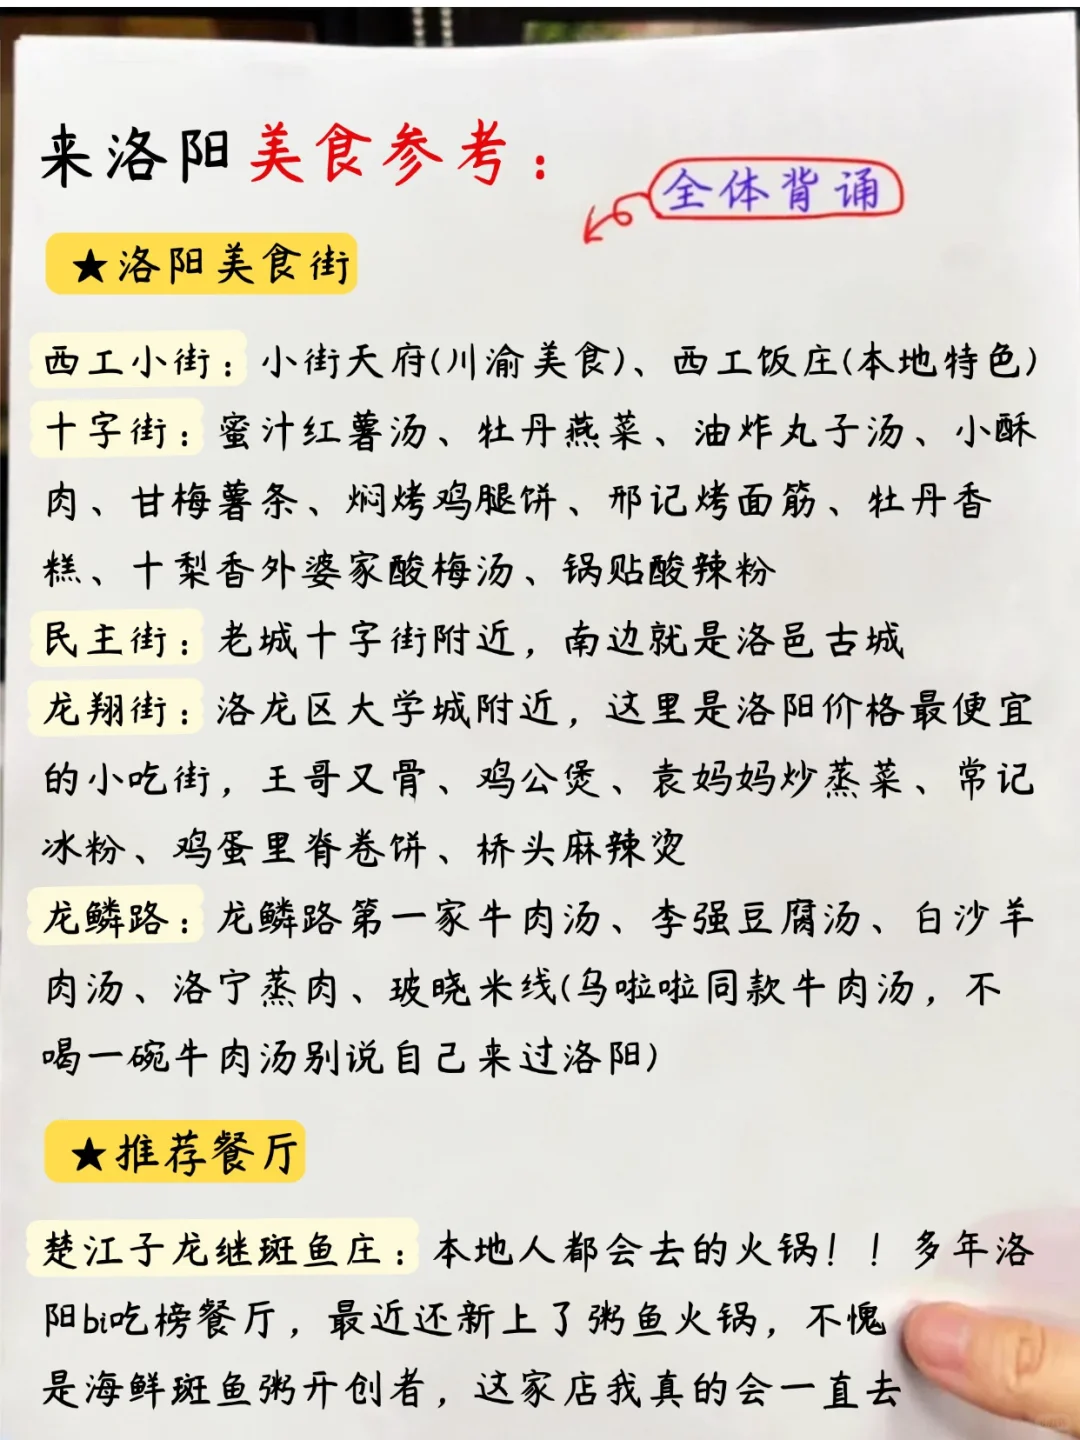 来洛阳美食参考：
全体背诵
★洛阳美食街
西工小街：小街天府(川渝美食)、西工饭庄(本地特色)
十字街：蜜汁红薯汤、牡丹燕菜、油炸丸子汤、小酥
肉、甘梅薯条、焖烤鸡腿饼、邢记烤面筋、牡丹香
糕、十梨香外婆家酸梅汤、锅贴酸辣粉
民主街：老城十字街附近，南边就是洛邑古城
龙翔街：洛龙区大学城附近，这里是洛阳价格最便宜
的小吃街，王哥又骨、鸡公煲、袁妈妈炒蒸菜、常记
冰粉、鸡蛋里脊卷饼、桥头麻辣烫
龙鳞路：龙鳞路第一家牛肉汤、李强豆腐汤、白沙羊
肉汤、洛宁蒸肉、玻晓米线(乌啦啦同款牛肉汤，不
喝一碗牛肉汤别说自己来过洛阳)
★推荐餐厅
楚江子龙继斑鱼庄：本地人都会去的火锅！！多年洛
阳bi吃榜餐厅，最近还新上了粥鱼火锅，不愧
是海鲜斑鱼粥开创者，这家店我真的会一直去